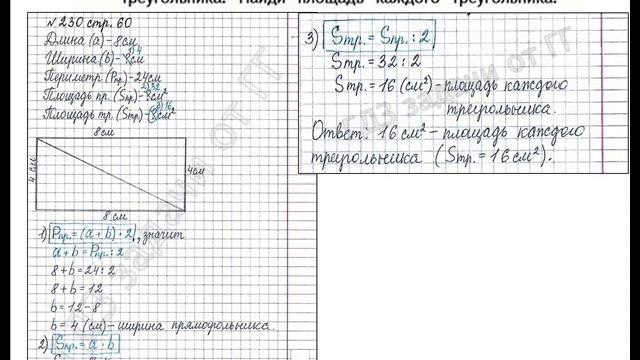 треугольника. Найди площадь каждого треугольника.
№ 230 стр. 60
Длина (a) - 8см
Ширина (b) - ? см 1) 4
Периметр (Pпр.) - 24см
Площадь пр. (Sпр.) - ? см² 2) 32
Площадь тр. (Sтр.) - ? см² 3) 16
8см
4 см
4см
8 см
1) Pпр. = (a + b) · 2, значит
a + b = Pпр. : 2
8 + b = 24 : 2
8 + b = 12
b = 12 - 8
b = 4 (см) - ширина прямоугольника.
2) Sпр. = a · b
3) Sтр. = Sпр. : 2
Sтр. = 32 : 2
Sтр. = 16 (см²) - площадь каждого
треугольника.
Ответ: 16 см² - площадь каждого
треугольника (Sтр. = 16 см²).
ГДЗ задачи от ГГ
ГДЗ задачи от ГГ